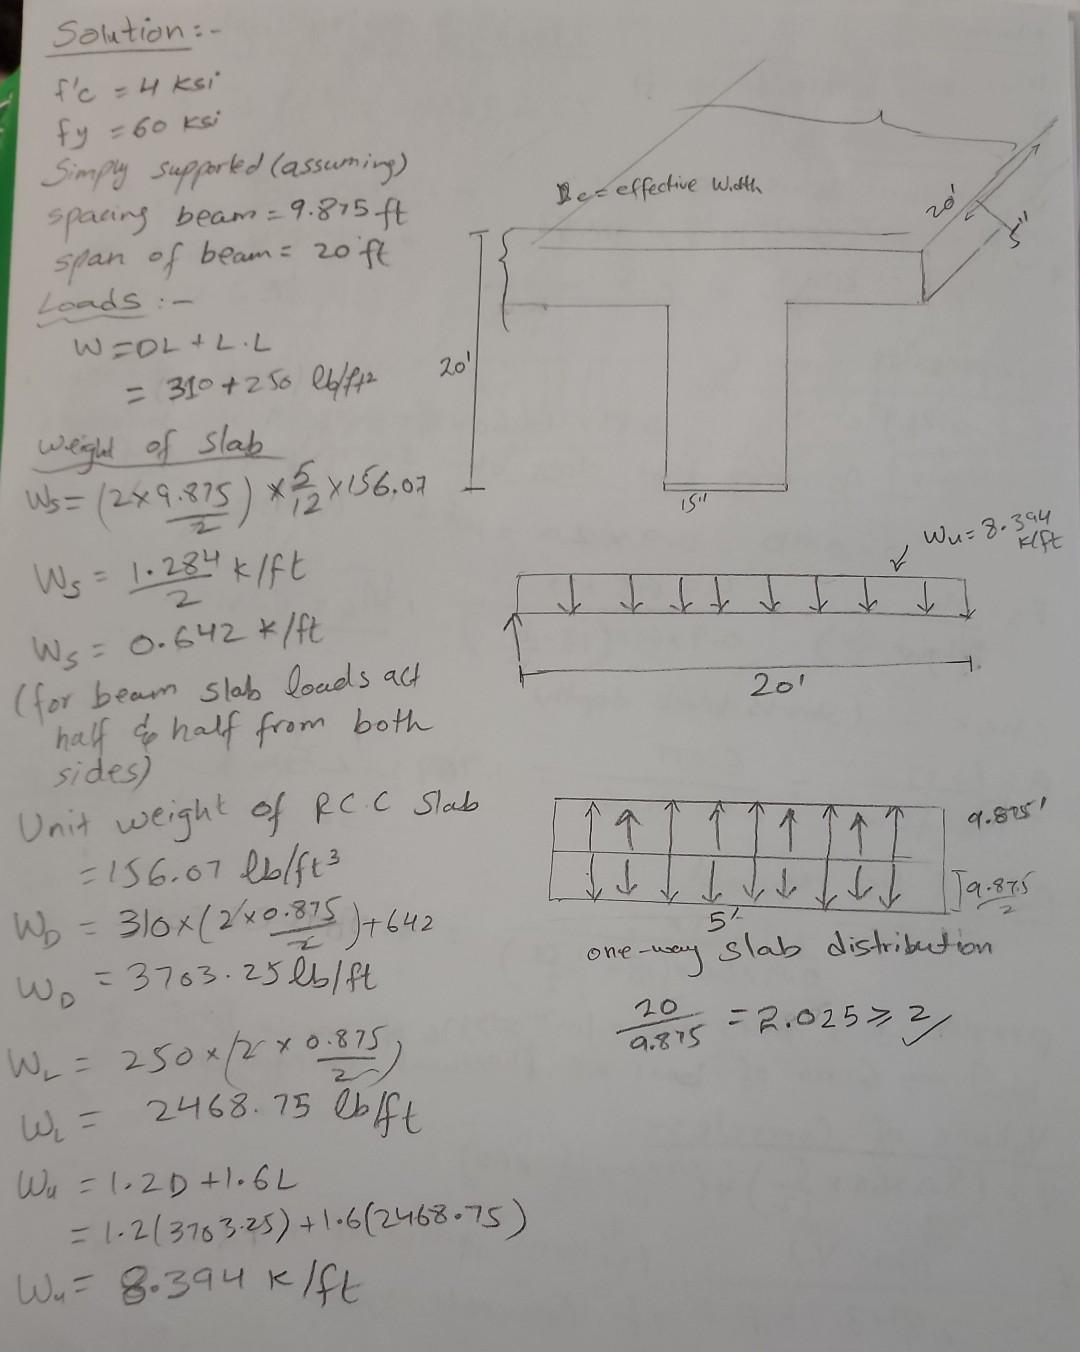 Solution :-
f'c = 4 ksi
fy = 60 ksi
Simply supported (assuming)
spacing beam = 9.875 ft
span of beam = 20 ft
Loads :-
W = DL + L.L
= 310 + 250 lb/ft²
weight of slab
Ws = (2 x 9.875/2) x 5/12 x 156.07
Ws = 1.284/2 k/ft
Ws = 0.642 k/ft
(for beam slab loads act
half & half from both
sides)
Unit weight of R.C.C Slab
= 156.07 lb/ft³
WD = 310 x (2 x 0.875/2) + 642
WD = 3703.25 lb/ft
WL = 250 x (2 x 0.875/2)
WL = 2468.75 lb/ft
Wu = 1.2D + 1.6L
= 1.2(3703.25) + 1.6(2468.75)
Wu = 8.394 k/ft
be = effective width
20'
5"
20'
15"
Wu = 8.394 k/ft
20'
9.875'
9.875/2
5'
one-way slab distribution
20/9.875 = 2.025 ≥ 2 ✓